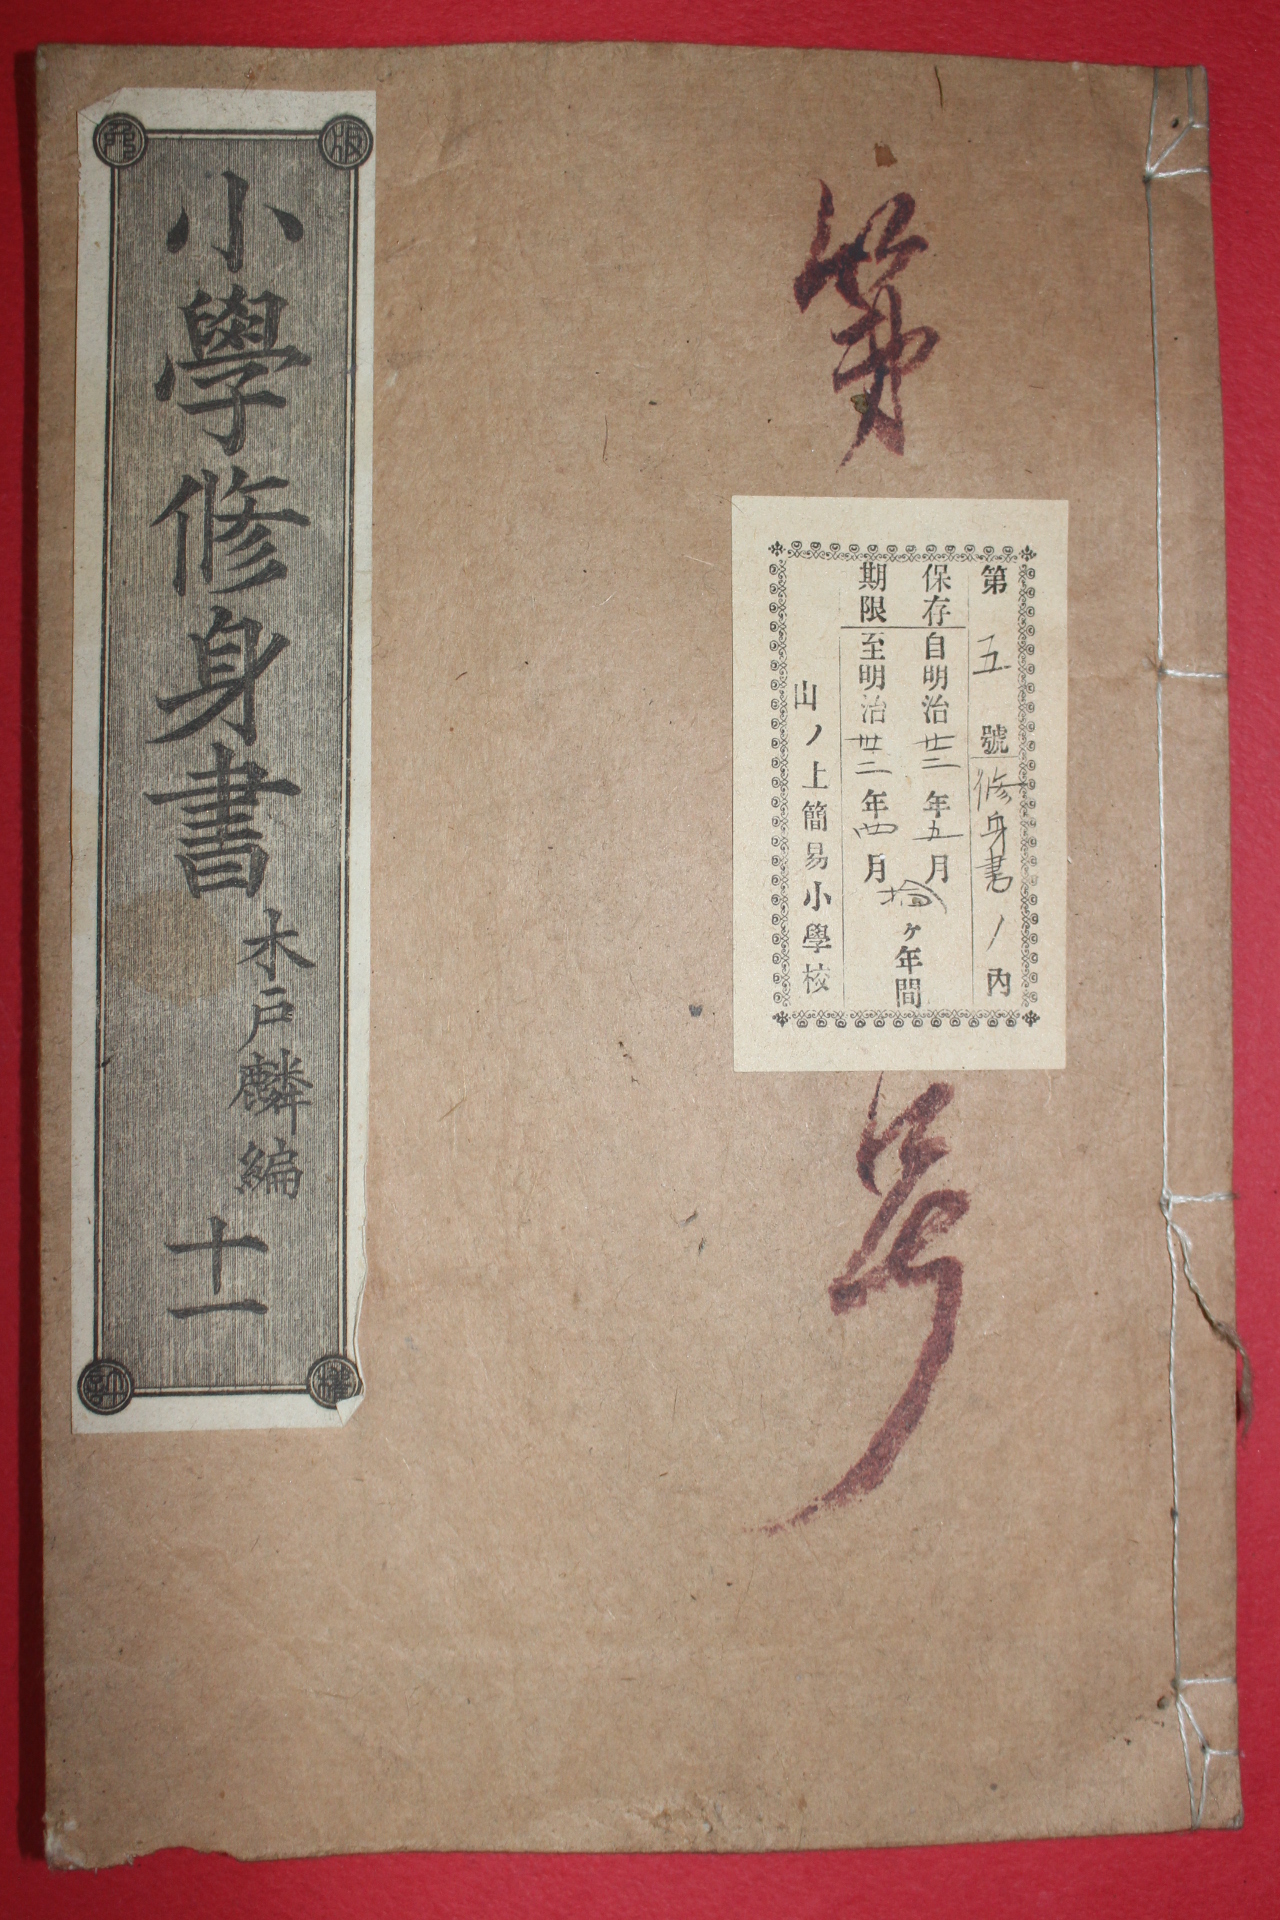 第
第 五 號 修身書 ノ 内
保存 自明治廿二年五月
期限 至明治卅二年四月
拾ヶ年間
山ノ上簡易小學校
号
小學修身書
木戸麟編
十一
版